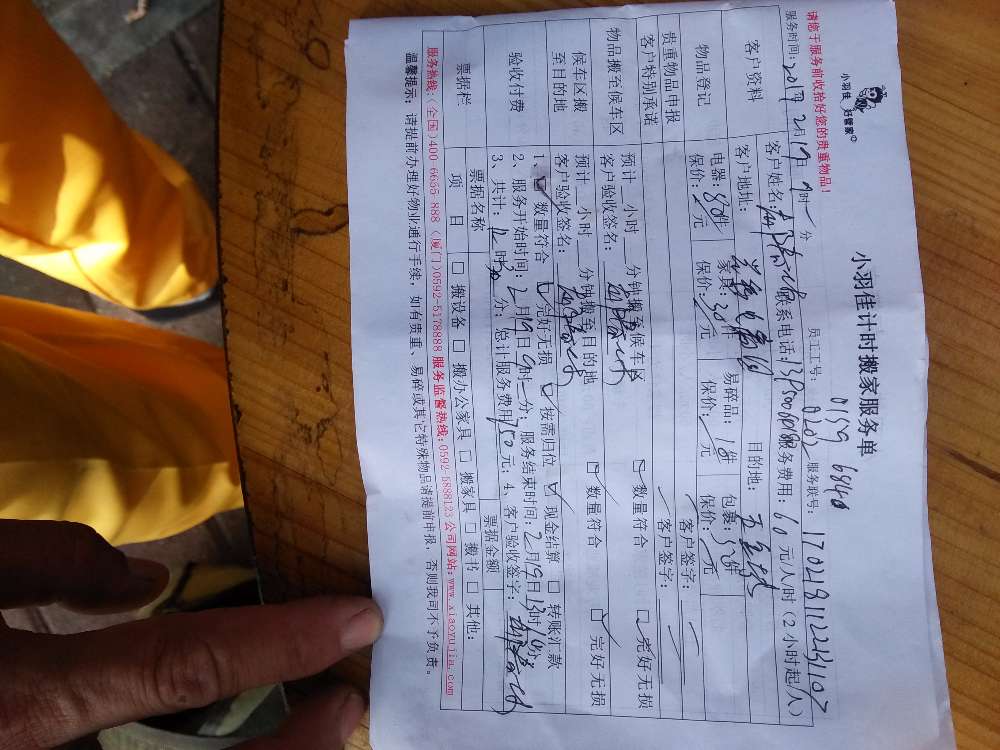 小羽佳 好管家
小羽佳计时搬家服务单
请您于服务前收拾好您的贵重物品!
员工工号: 0159 6840 0202
服务时间: 2017年2月19日9时 分 服务联号: 170218112213107
客户资料
客户姓名: 联系电话: 服务费用: 60元/人时(2小时起/人)
客户地址: 目的地:
物品登记
电器: 8件 家具: 30件 易碎品: 1件 包裹: 52件
保价: 元 保价: 元 保价: 元 保价: 元
贵重物品申报 客户签字:
客户特别承诺 客户签字:
物品搬至候车区
预计 小时 分钟搬至候车区 数量符合 完好无损
客户验收签名:
候车区搬至目的地
预计 小时 分钟搬至目的地 数量符合 完好无损
客户验收签名:
验收付费
1、 数量符合 完好无损 按需归位 现金结算 转账汇款
2、服务开始时间: 2月19日9时 分; 服务结束时间: 2月19日13时10分;
3、共计: 12时30分; 总计服务费用750元; 4、客户验收签字:
票据栏
票据名称 票据金额
项 目 搬设备 搬办公家具 搬家具 搬书 其他:
服务热线:(全国)400-6655-888 (厦门)0592-5178888 服务监督热线:0592-5898123 公司网站:www.xiaoyujia.com
温馨提示: 请提前办理好物业通行手续,如有贵重、易碎或其它特殊物品请提前申报,否则我司不予负责。